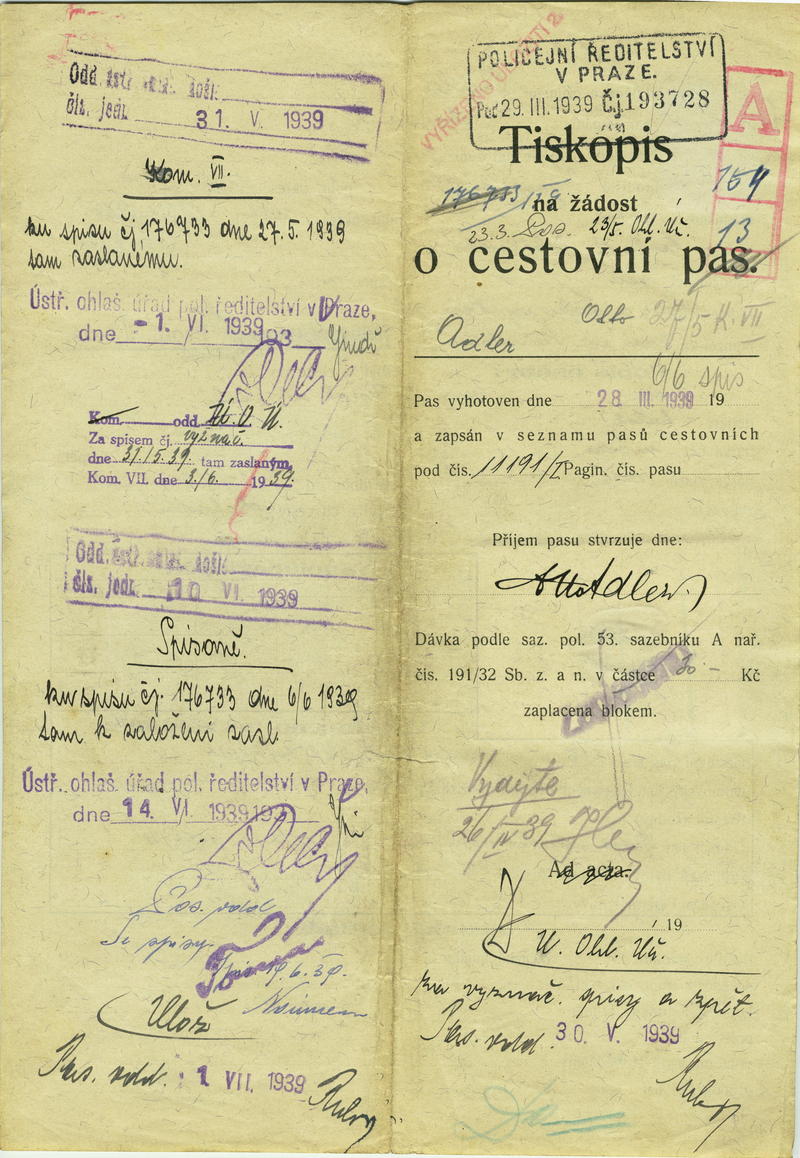 Odd. došlo
čís. jedn. 31. V. 1939
Kom. VII.
ku spisu čj 176733 dne 27.5.1939
tam zaslanému.
Ústř. ohlaš. úřad pol. ředitelství v Praze,
dne -1. VI. 1939 193
Kom. odd.
Za spisem čj. vyznač.
dne 31.5.39. tam zaslaným.
Kom. VII. dne 3./6. 1939.
Odd. došlo
čís. jedn. 10 VI. 1939
Spisovně.
ku spisu čj. 176733 dne 6/6 1939
tam k založení zasl.
Ústř. ohlaš. úřad pol. ředitelství v Praze,
dne 14. VI. 1939 193
Pas. odd.
Se spisy
19.6.39.
Neumann
Ulož
Pas. odd. 1 VII. 1939
VYŘÍZENO
POLICEJNÍ ŘEDITELSTVÍ
V PRAZE.
29. III. 1939 Čj. 193728
A
Tiskopis
159
176733
na žádost
23.3. Pas. 23/5. Ohl. Úř.
13
o cestovní pas.
Adler Otto 27/5 K. VII
6/6 spis
Pas vyhotoven dne 28. III. 1939 19
a zapsán v seznamu pasů cestovních
pod čís. 11191/I Pagin. čís. pasu
Příjem pasu stvrzuje dne:
Otto Adler
Dávka podle saz. pol. 53. sazebníku A nař.
čís. 191/32 Sb. z. a n. v částce 30 - Kč
zaplacena blokem.
Vydejte
26/IV 39
Ad acta.
19
U. Ohl. Úř.
ku vyznač. a zpět.
Pas. odd. 30. V. 1939